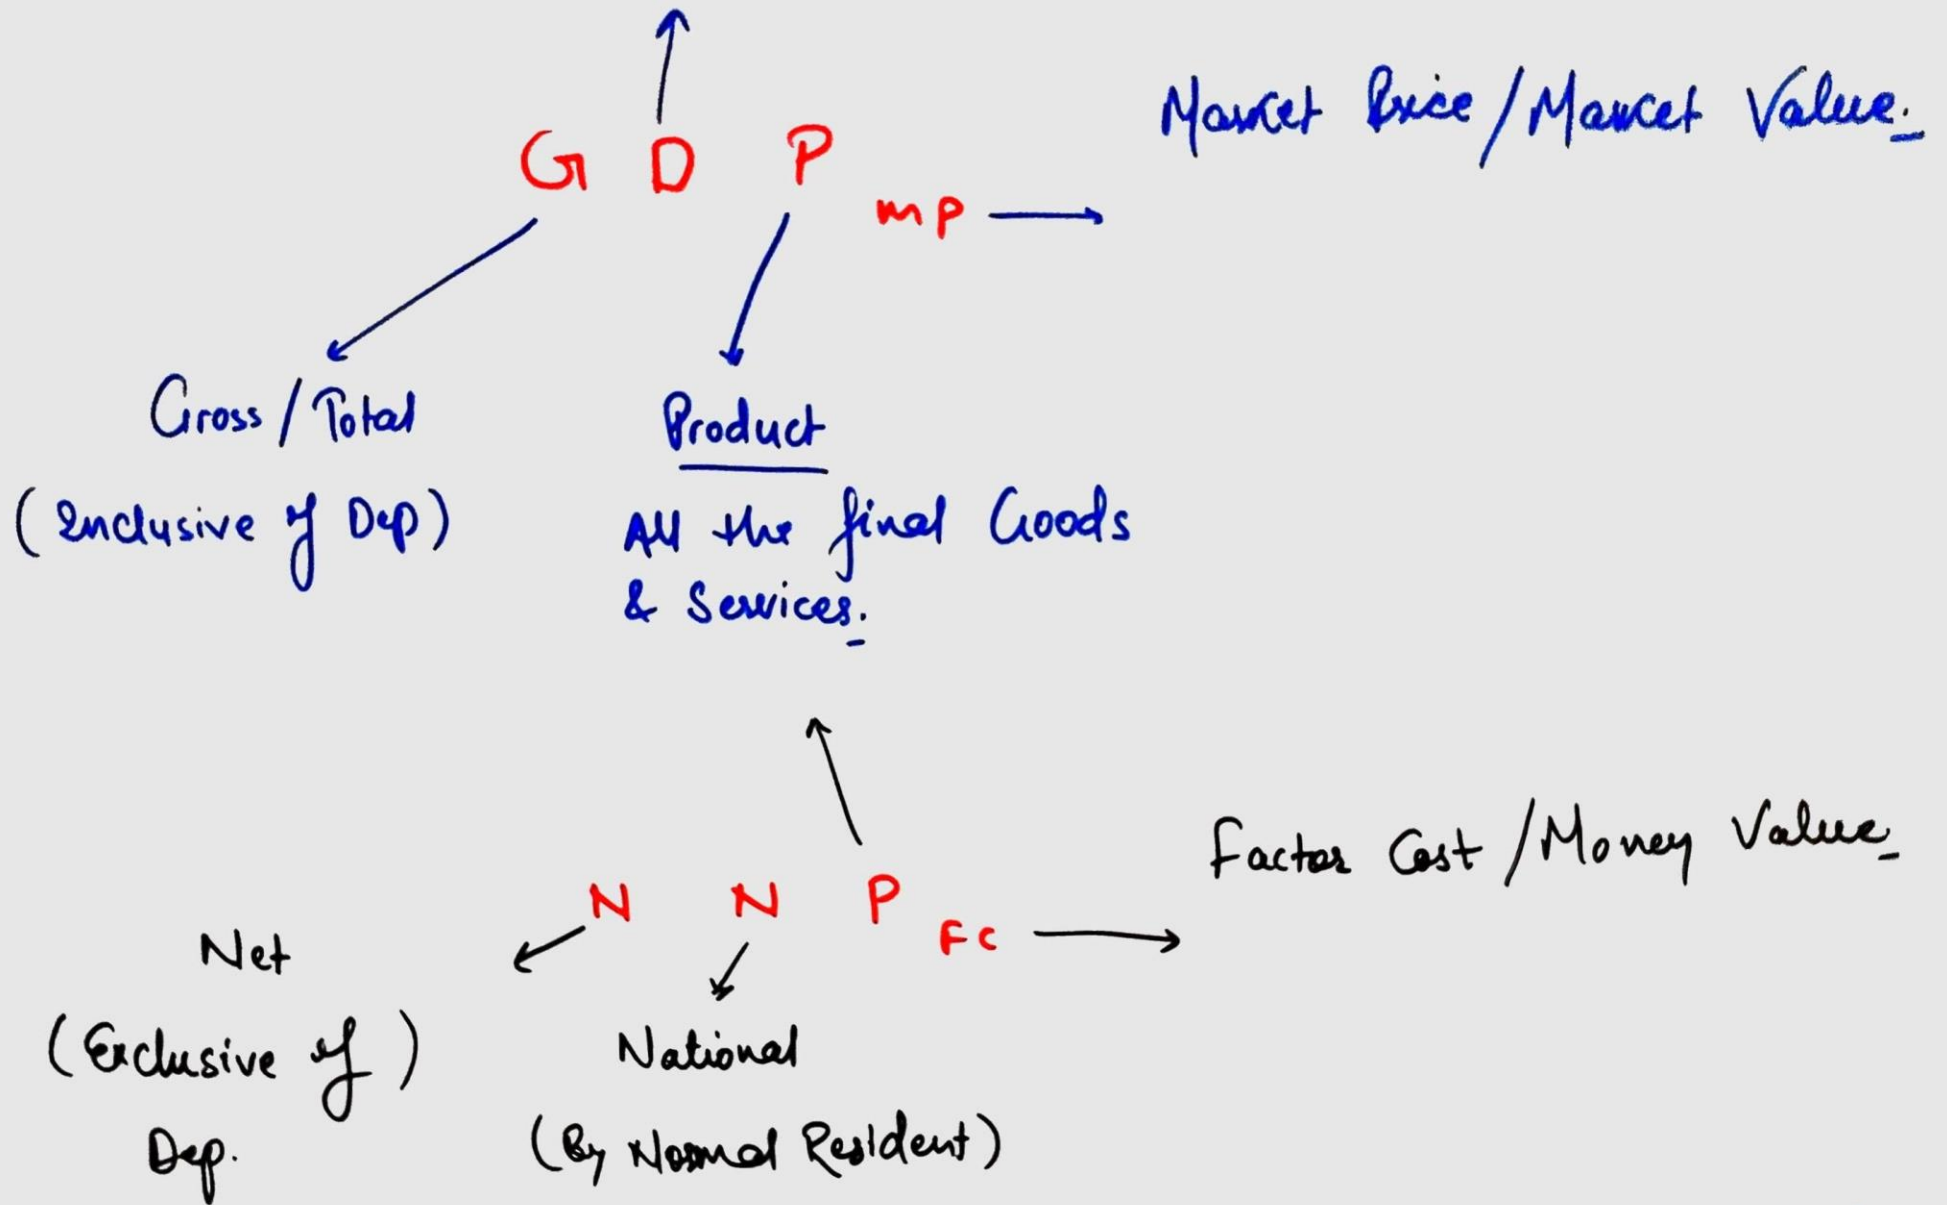 Market Price / Market Value.
G D P mp
Gross / Total
(Inclusive of Dep)
Product
All the final Goods
& Services.
Factor Cost / Money Value
N N P FC
Net
(Exclusive of)
Dep.
National
(By Normal Resident)